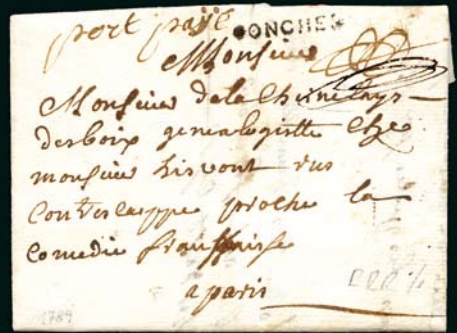 port payé CONCHES
Monsieur
Monsieur de la Chesnelays
desboix genealogiste Chez
monsieur hisvont rus
Contrescarppe proche la
Comedie franssaise
a paris
1784